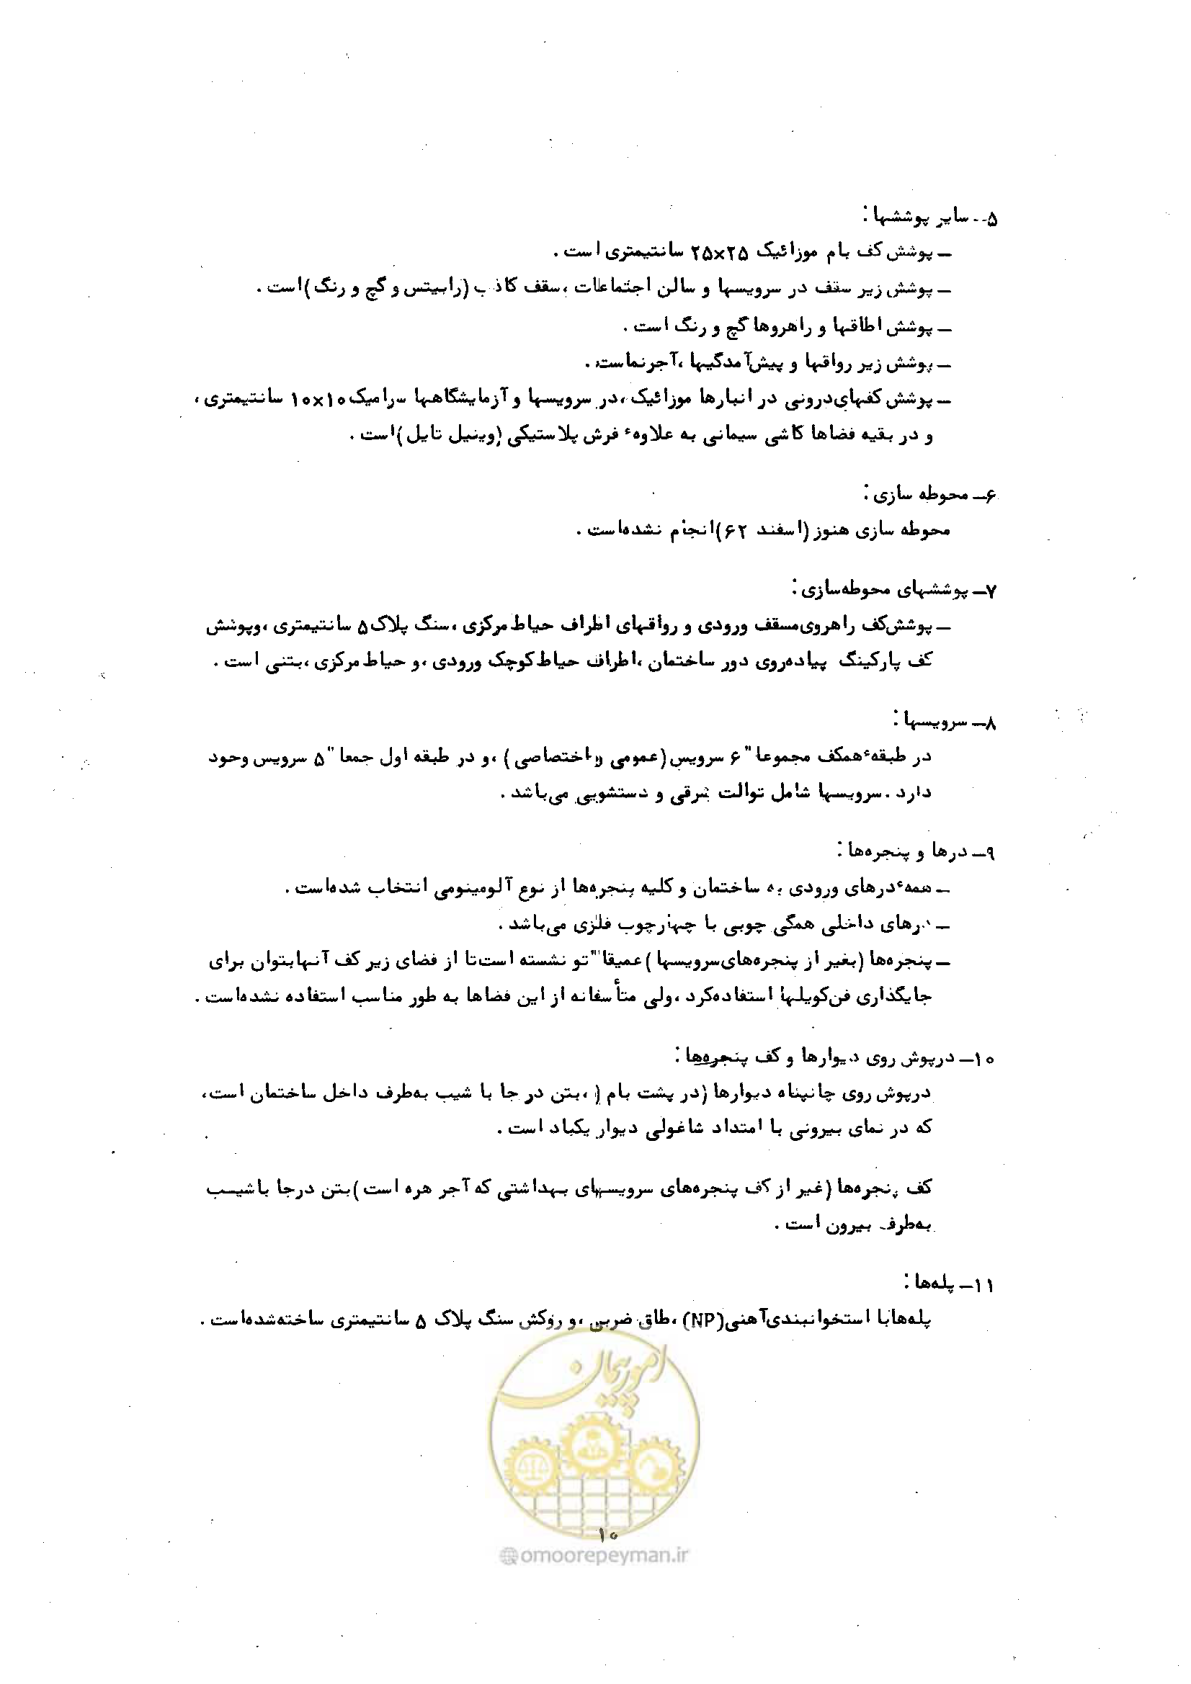 ۵-- سایر پوششها :
— پوشش کف بام موزائیک ۲۵×۲۵ سانتیمتری است .
— پوشش زیر سقف در سرویسها و سالن اجتماعات ، سقف کاذب (رابیتس و گچ و رنگ) است .
— پوشش اطاقها و راهروها گچ و رنگ است .
— پوشش زیر رواقها و پیش‌آمدگیها ، آجرنماست .
— پوشش کفهای درونی در انبارها موزائیک ، در سرویسها و آزمایشگاهها سرامیک ۱۰×۱۰ سانتیمتری ،
و در بقیه فضاها کاشی سیمانی به علاوهٔ فرش پلاستیکی (وینیل تایل) است .
۶— محوطه سازی :
محوطه سازی هنوز (اسفند ۶۲) انجام نشده‌است .
۷— پوششهای محوطه‌سازی :
— پوشش کف راهروی مسقف ورودی و رواقهای اطراف حیاط مرکزی ، سنگ پلاک ۵ سانتیمتری ، وپوشش
کف پارکینگ پیاده‌روی دور ساختمان ، اطراف حیاط کوچک ورودی ، و حیاط مرکزی ، بتنی است .
۸— سرویسها :
در طبقهٔ همکف مجموعا" ۶ سرویس (عمومی و اختصاصی) ، و در طبقه اول جمعا" ۵ سرویس وجود
دارد . سرویسها شامل توالت شرقی و دستشویی می‌باشد .
۹— درها و پنجره‌ها :
— همهٔ درهای ورودی به ساختمان و کلیه پنجره‌ها از نوع آلومینومی انتخاب شده‌است .
— درهای داخلی همگی چوبی با چهارچوب فلزی می‌باشد .
— پنجره‌ها (بغیر از پنجره‌های سرویسها) عمیقا" تو نشسته است تا از فضای زیر کف آنها بتوان برای
جایگذاری فن‌کویلها استفاده‌کرد ، ولی متأسفانه از این فضاها به طور مناسب استفاده نشده‌است .
۱۰— درپوش روی دیوارها و کف پنجره‌ها :
درپوش روی جانپناه دیوارها (در پشت بام) ، بتن در جا با شیب به‌طرف داخل ساختمان است ،
که در نمای بیرونی با امتداد شاغولی دیوار یکباد است .
کف پنجره‌ها (غیر از کف پنجره‌های سرویسهای بهداشتی که آجر هره است) بتن درجا باشیب
به‌طرف بیرون است .
۱۱— پله‌ها :
پله‌ها با استخوانبندی آهنی (NP) ، طاق ضربی ، و روکش سنگ پلاک ۵ سانتیمتری ساخته‌شده‌است .
امور پیمان
۱۰
@omoorepeyman.ir